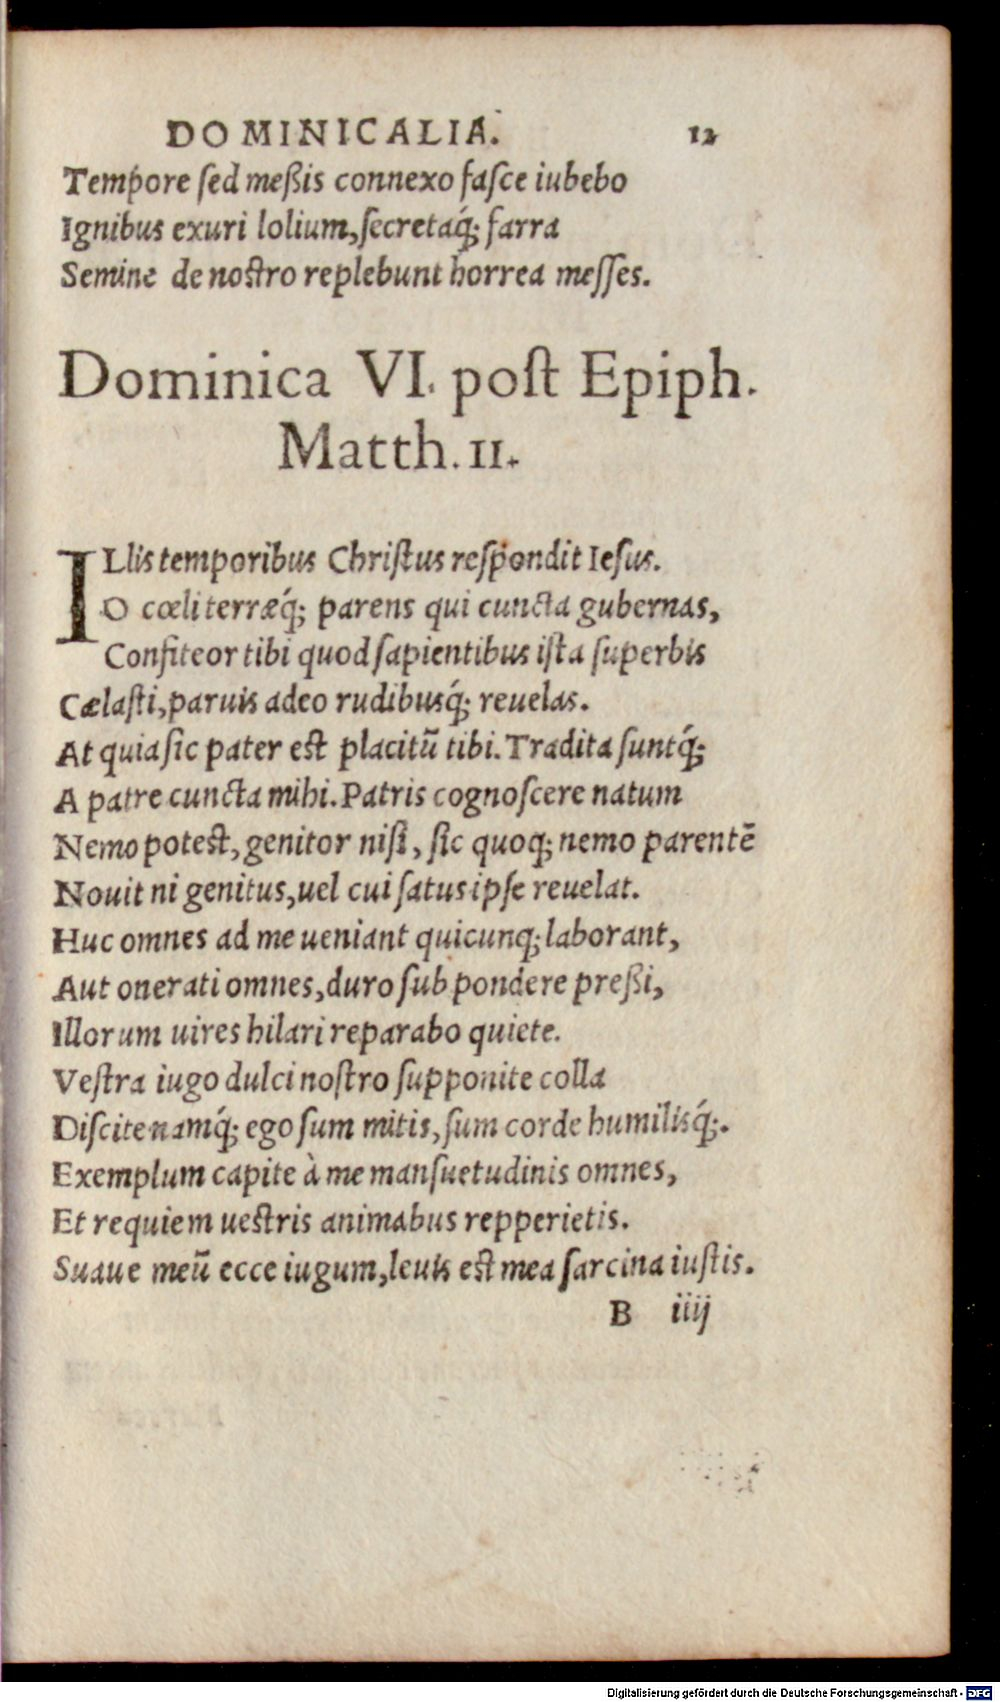 DOMINICALIA. 12
Tempore ſed meßis connexo faſce iubebo
Ignibus exuri lolium,ſecretaq́; farra
Semine de noſtro replebunt horrea meſſes.
Dominica VI. poſt Epiph.
Matth. 11.
ILlis temporibus Chriſtus reſpondit Ieſus.
O cœli terræq́; parens qui cuncta gubernas,
Confiteor tibi quod ſapientibus iſta ſuperbis
Cælaſti,paruis adeo rudibusq́; reuelas.
At quia ſic pater eſt placitū tibi. Tradita ſuntq́;
A patre cuncta mihi. Patris cognoſcere natum
Nemo poteſt, genitor niſi, ſic quoq; nemo parentē
Nouit ni genitus,uel cui ſatus ipſe reuelat.
Huc omnes ad me ueniant quicunq; laborant,
Aut onerati omnes,duro ſub pondere preßi,
Illorum uires hilari reparabo quiete.
Veſtra iugo dulci noſtro ſupponite colla
Diſcite namq́; ego ſum mitis,ſum corde humilisq́;.
Exemplum capite à me manſuetudinis omnes,
Et requiem ueſtris animabus repperietis.
Suaue meū ecce iugum,leuis eſt mea ſarcina iuſtis.
B iiij
Digitalisierung gefördert durch die Deutsche Forschungsgemeinschaft - DFG